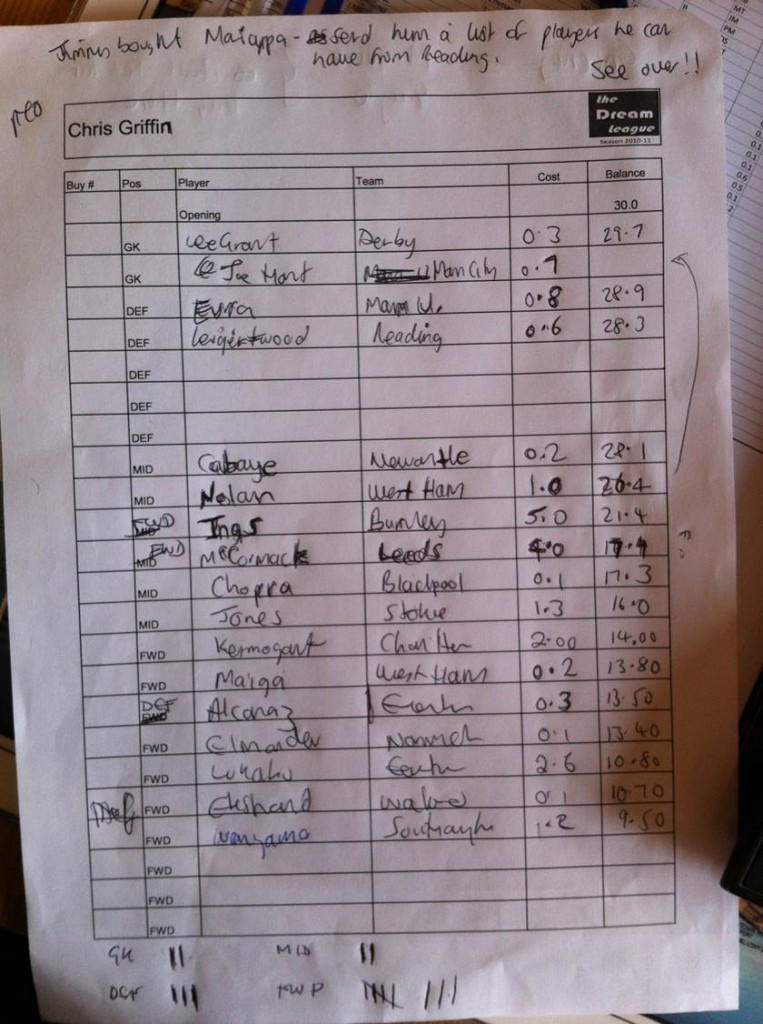 Jimms bought Maiappa - send him a list of players he can
have from Reading.
See over!!
PTO
Chris Griffin
the
Dream
league
Season 2010-11
Buy # Pos Player Team Cost Balance
Opening 30.0
GK Lee Grant Derby 0.3 29.7
GK Joe Hart Man City 0.7
DEF Evra Man U. 0.8 28.9
DEF Reading 0.6 28.3
DEF
DEF
DEF
MID Cabaye Newcastle 0.2 28.1
MID Nolan West Ham 1.0 26.4
FWD Ings Burnley 5.0 21.4
FWD McCormack Leeds 4.0 17.4
MID Chopra Blackpool 0.1 17.3
MID Jones Stoke 1.3 16.0
FWD Kermogant Charlton 2.00 14.00
FWD Maiga West Ham 0.2 13.80
DEF Alcaraz Everton 0.3 13.50
FWD Elmander Norwich 0.1 13.40
FWD Lukaku Everton 2.6 10.80
Def FWD 0.1 10.70
FWD Wanyama Southampton 1.2 9.50
FWD
FWD
FWD
GK II MID II
DEF III FWD IIII III